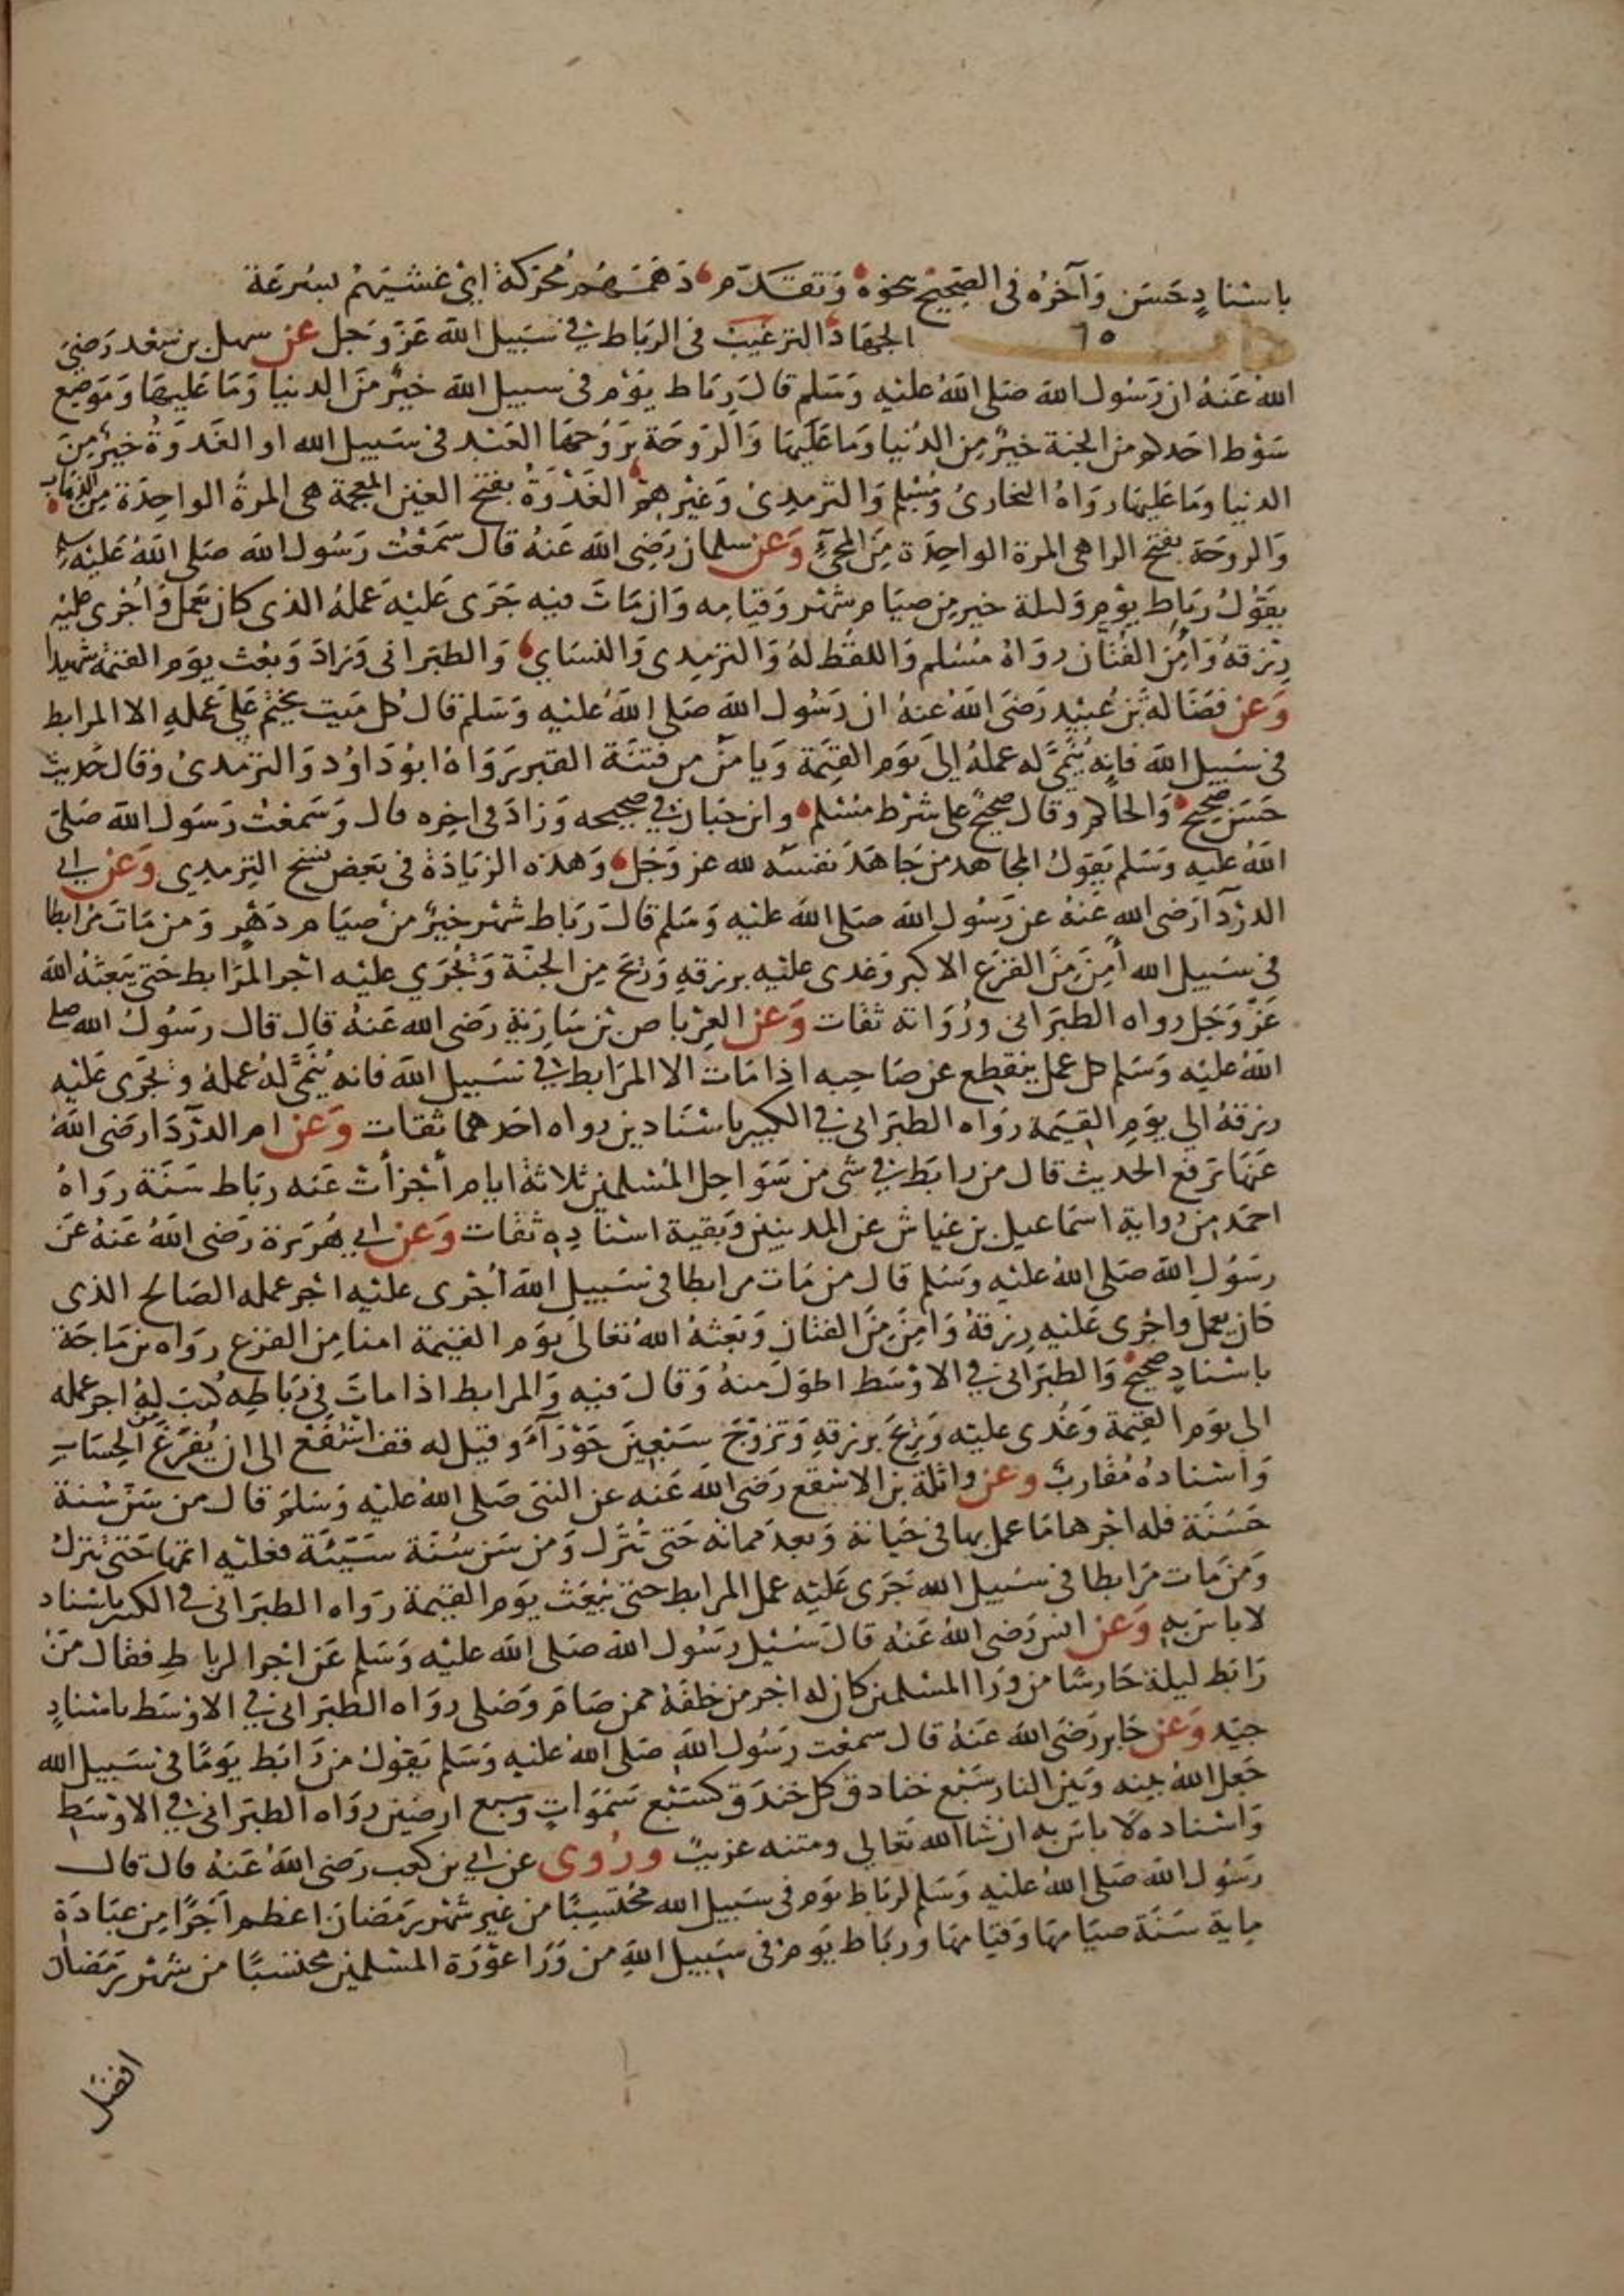 باسناد حسن وآخره فى الصحيح بنحوه وتقدم دهمتهم محركة اى غشيتهم بسرعة
٦٥ الجهاد الترغيب فى الرباط فى سبيل الله عز وجل عن سهل بن سعد رضى
الله عنه ان رسول الله صلى الله عليه وسلم قال رباط يوم فى سبيل الله خير من الدنيا وما عليها وموضع
سوط احدكم من الجنة خير من الدنيا وما عليها والروحة يروحها العبد فى سبيل الله او الغدوة خير من
الدنيا وما عليها رواه البخارى ومسلم والترمذى وغيرهم الغدوة بفتح الغين المعجمة هى المرة الواحدة من الذهاب
والروحة بفتح الرا هى المرة الواحدة من المجىء وعن سلمان رضى الله عنه قال سمعت رسول الله صلى الله عليه وسلم
يقول رباط يوم وليلة خير من صيام شهر وقيامه وان مات فيه جرى عليه عمله الذى كان يعمل واجرى عليه
رزقه وامن الفتان رواه مسلم واللفظ له والترمذى والنساي والطبرانى وزاد وبعث يوم القيمة شهيدا
وعن فضالة بن عبيد رضى الله عنه ان رسول الله صلى الله عليه وسلم قال كل ميت يختم على عمله الا المرابط
فى سبيل الله فانه ينمى له عمله الى يوم القيمة ويامن من فتنة القبر رواه ابو داود والترمذى وقال حديث
حسن صحيح والحاكم وقال صحيح على شرط مسلم وابن حبان فى صحيحه وزاد فى اخره قال وسمعت رسول الله صلى
الله عليه وسلم يقول المجاهد من جاهد نفسه لله عز وجل وهذه الزيادة فى بعض نسخ الترمذي وعن ابي
الدردآ رضى الله عنه عن رسول الله صلى الله عليه وسلم قال رباط شهر خير من صيام دهر ومن مات مرابطا
فى سبيل الله أمن من الفزع الاكبر وغدى عليه برزقه وريح من الجنة ويجري عليه اجر المرابط حتى يبعثه الله
عز وجل رواه الطبرانى ورواته ثقات وعن العرباض بن سارية رضى الله عنه قال قال رسول الله صلى
الله عليه وسلم كل عمل ينقطع عن صاحبه اذا مات الا المرابط فى سبيل الله فانه ينمى له عمله ويجرى عليه
رزقه الى يوم القيمة رواه الطبرانى فى الكبير باسنادين رواه احدهما ثقات وعن ام الدردا رضى الله
عنها ترفع الحديث قال من رابط فى شى من سواحل المسلمين ثلاثة ايام أجزأت عنه رباط سنة رواه
احمد من رواية اسماعيل بن عياش عن المدنيين وبقية اسناده ثقات وعن ابي هريرة رضى الله عنه عن
رسول الله صلى الله عليه وسلم قال من مات مرابطا فى سبيل الله أجرى عليه اجر عمله الصالح الذى
كان يعمل واجرى عليه رزقه وامن من الفتان وبعثه الله تعالى يوم القيمة امنا من الفزع رواه بن ماجة
باسناد صحيح والطبرانى فى الاوسط اطول منه وقال فيه والمرابط اذا مات فى رباطه كتب له اجر عمله
الى يوم القيمة وغدى عليه وريح برزقه وتزوج سبعين حورآء وقيل له قف اشفع الى ان يفرغ من الحساب
واسناده مقارب وعن واثلة بن الاسقع رضى الله عنه عن النبى صلى الله عليه وسلم قال من سن سنة
حسنة فله اجرها ما عمل بها فى حياته وبعد مماته حتى تترك ومن سن سنة سيئة فعليه اثمها حتى تترك
ومن مات مرابطا فى سبيل الله جرى عليه عمل المرابط حتى يبعث يوم القيمة رواه الطبرانى فى الكبير باسناد
لا باس به وعن انس رضى الله عنه قال سئل رسول الله صلى الله عليه وسلم عن اجر الرباط فقال من
رابط ليلة حارسا من ورا المسلمين كان له اجر من خلفه ممن صام وصلى رواه الطبرانى فى الاوسط باسناد
جيد وعن جابر رضى الله عنه قال سمعت رسول الله صلى الله عليه وسلم يقول من رابط يوما فى سبيل الله
جعل الله بينه وبين النار سبع خنادق كل خندق كسبع سموات وسبع ارضين رواه الطبرانى فى الاوسط
واسناده لا باس به ان شا الله تعالى ومتنه غريب وروى عن ابي بن كعب رضى الله عنه قال قال
رسول الله صلى الله عليه وسلم لرباط يوم فى سبيل الله محتسبا من غير شهر رمضان اعظم أجرا من عبادة
ماية سنة صيامها وقيامها ورباط يوم فى سبيل الله من ورا عورة المسلمين محتسبا من شهر رمضان
افضل